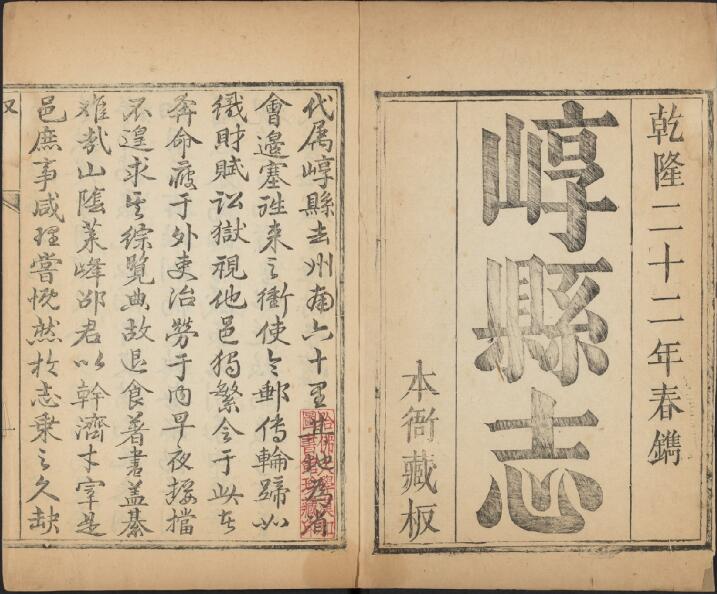 乾隆二十二年春鐫
崞縣志
本衙藏板
代属崞縣去州南六十里其地為省
會邊塞往来之衝使令郵傳輪蹄如
織財賦訟獄視他邑獨繁令于此者
奔命疲于外吏治勞于内早夜摒擋
不遑求其綜覽典故退食著書盖綦
难㢤山隂萊峰邵君以幹濟才宰是
邑庶事咸理嘗慨然於志乘之久缺